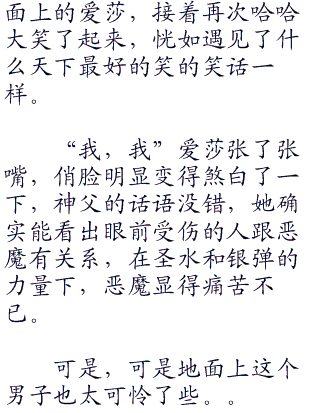 面上的爱莎，接着再次哈哈
大笑了起来，恍如遇见了什
么天下最好的笑的笑话一
样。
“我，我”爱莎张了张
嘴，俏脸明显变得煞白了一
下，神父的话语没错，她确
实能看出眼前受伤的人跟恶
魔有关系，在圣水和银弹的
力量下，恶魔显得痛苦不
已。
可是，可是地面上这个
男子也太可怜了些。。